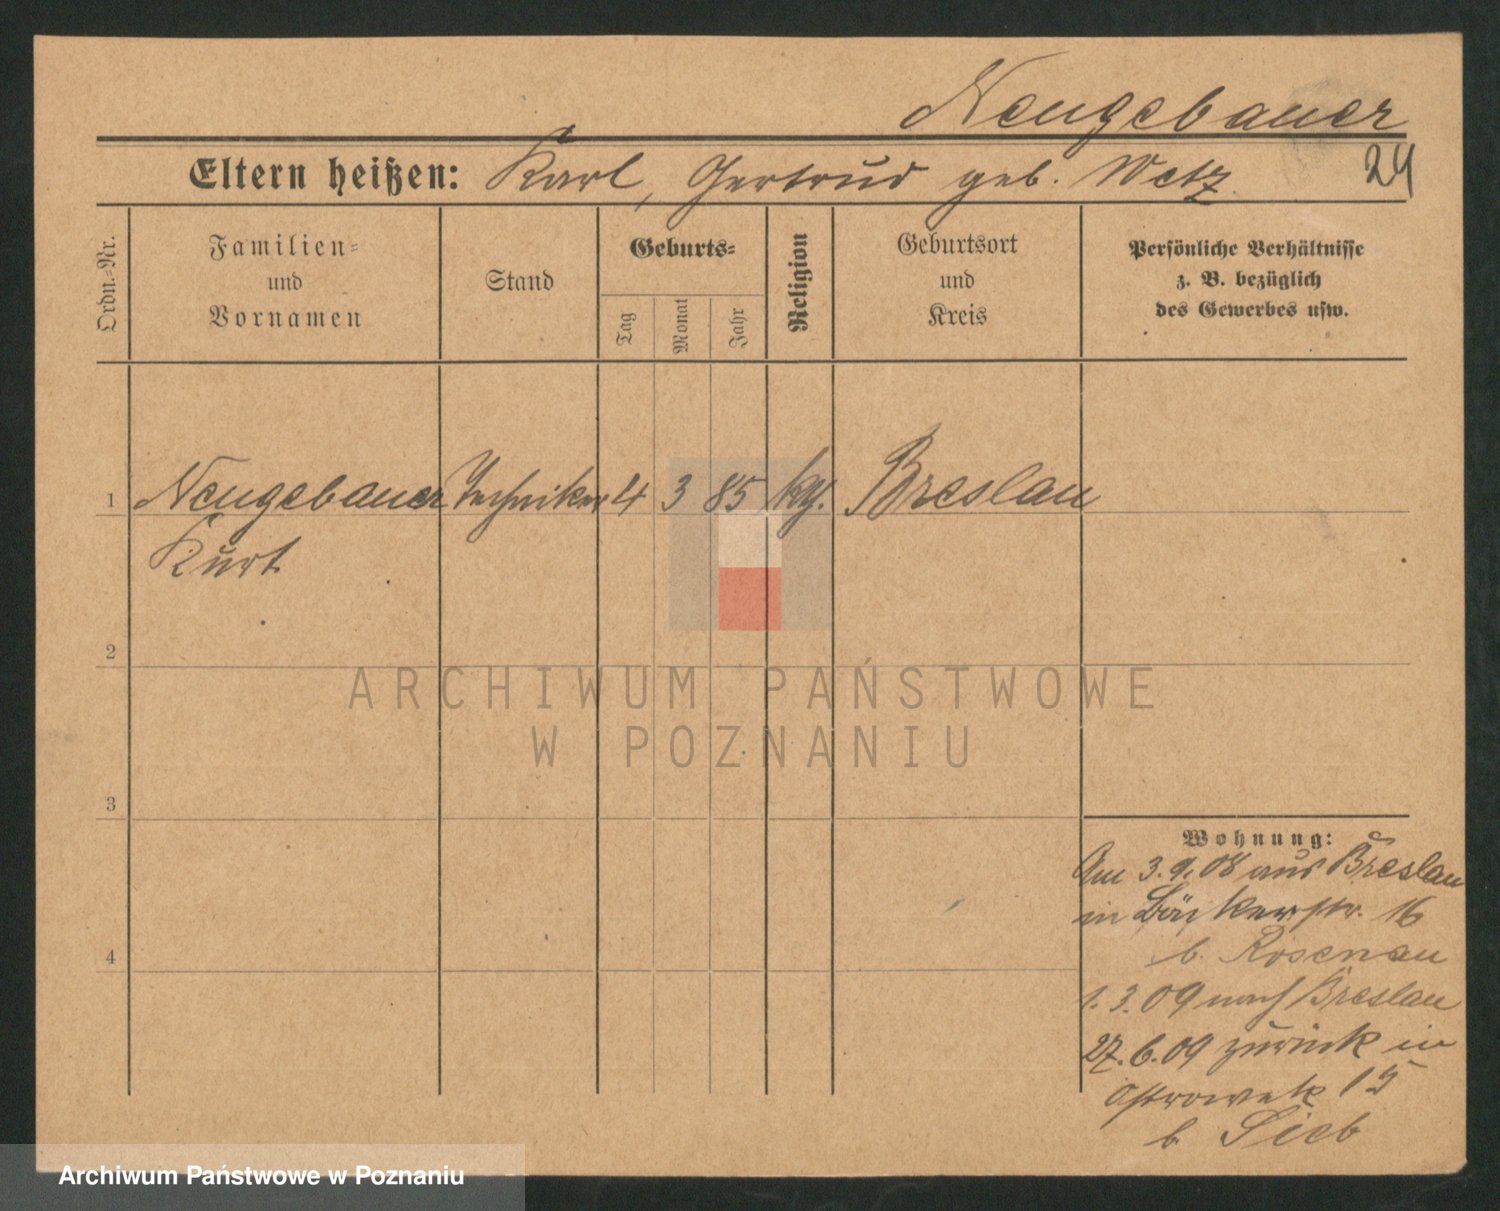 Neugebauer
Eltern heißen: Karl, Gertrud geb. Wetz
24
Ordn.-Nr.
Familien- und Vornamen
Stand
Geburts-
Tag
Monat
Jahr
Religion
Geburtsort und Kreis
Persönliche Verhältnisse
z. B. bezüglich
des Gewerbes usw.
1 Neugebauer Techniker 4 3 85 Breslau
Kurt
2
ARCHIWUM PAŃSTWOWE
W POZNANIU
3
Wohnung:
Am 3.9.08 aus Breslau
in Bäckerstr. 16
b. Rosenau
1.3.09 nach Breslau
4
27.6.09 zurück in
Ostrowek 15
b. Sieb
Archiwum Państwowe w Poznaniu